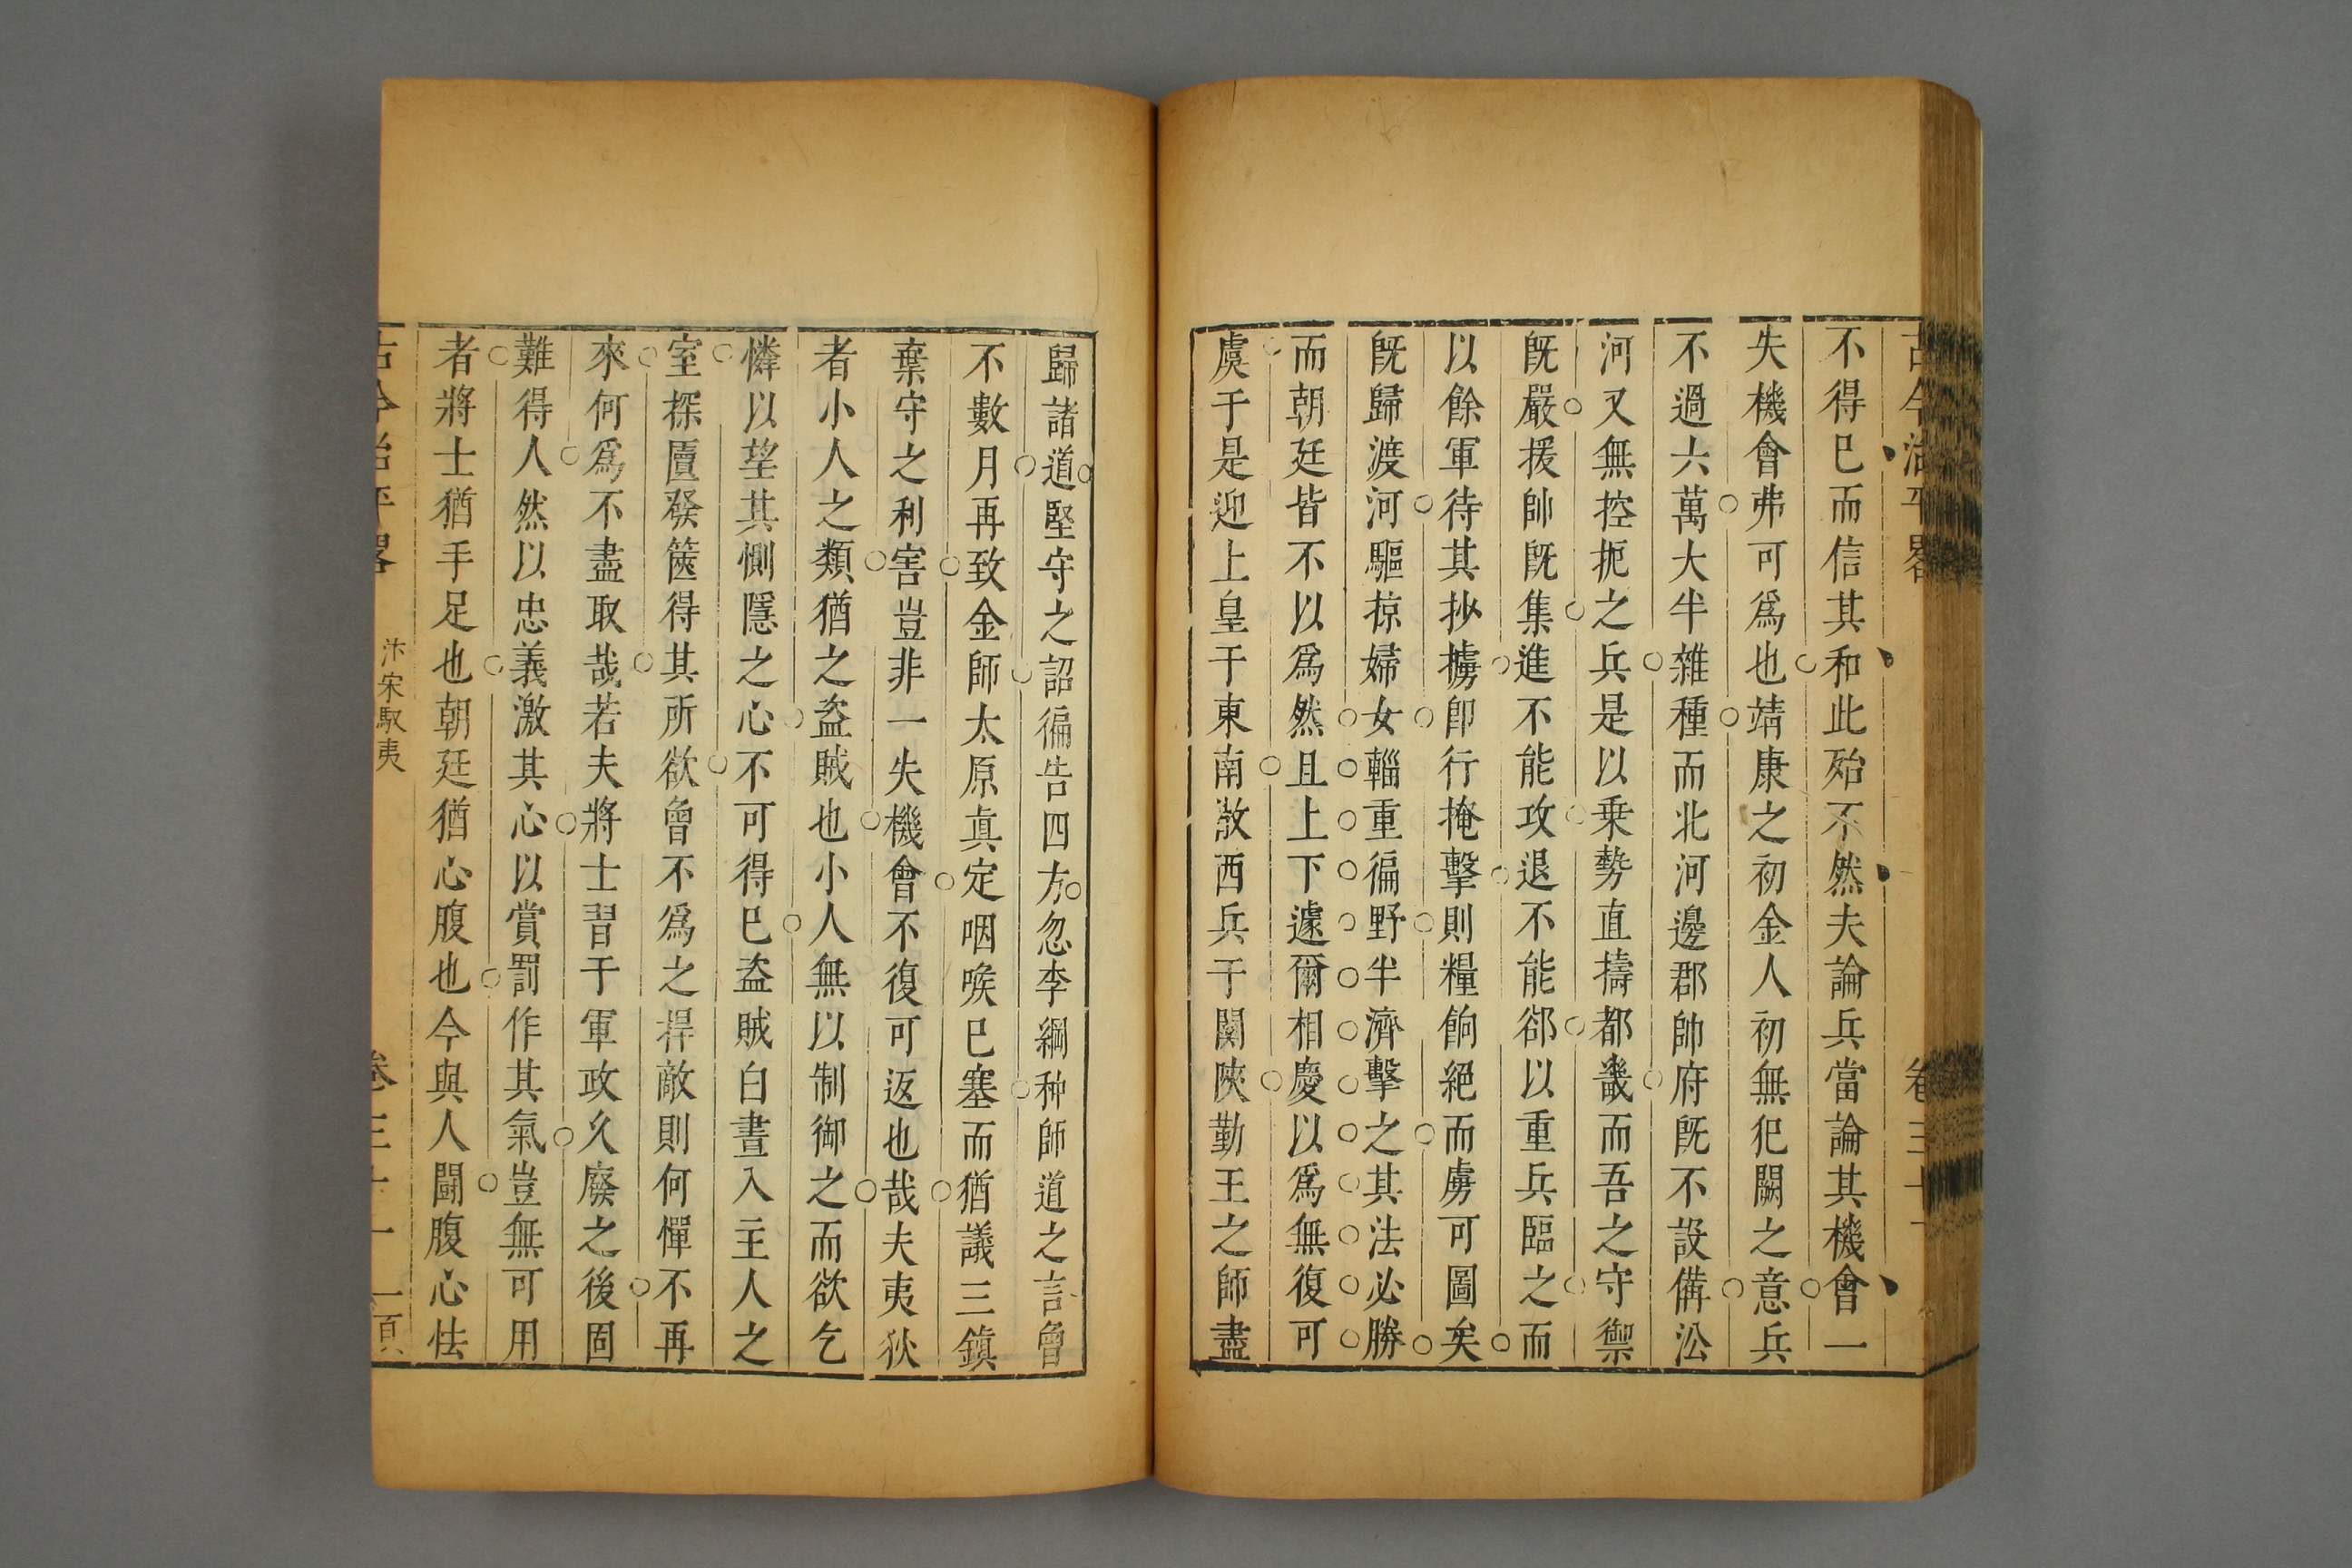 古今治平畧
卷三十一
不得已而信其和此殆不然夫論兵當論其機會一
失機會弗可爲也靖康之初金人初無犯闕之意兵
不過六萬大半雜種而北河邊郡帥府旣不設備㳂
河又無控扼之兵是以乗勢直擣都畿而吾之守禦
旣嚴援帥旣集進不能攻退不能郤以重兵臨之而
以餘軍待其抄擄卽行掩擊則糧餉絕而虜可圖矣
旣歸渡河驅掠婦女輜重徧野半濟擊之其法必勝
而朝廷皆不以爲然且上下遽爾相慶以爲無復可
虞于是迎上皇于東南散西兵于關陜勤王之師盡
歸諸道堅守之詔徧告四方忽李綱种師道之言曾
不數月再致金師太原真定咽喉已塞而猶議三鎮
棄守之利害豈非一失機會不復可返也哉夫夷狄
者小人之類猶之盗賊也小人無以制御之而欲乞
憐以望其惻隱之心不可得已盗賊白晝入主人之
室探匱發篋得其所欲曾不爲之捍敵則何憚不再
來何爲不盡取哉若夫將士習于軍政久廢之後固
難得人然以忠義激其心以賞罰作其氣豈無可用
者將士猶手足也朝廷猶心腹也今與人鬪腹心怯
古今治平畧
汴宋馭夷
卷三十一
一頁